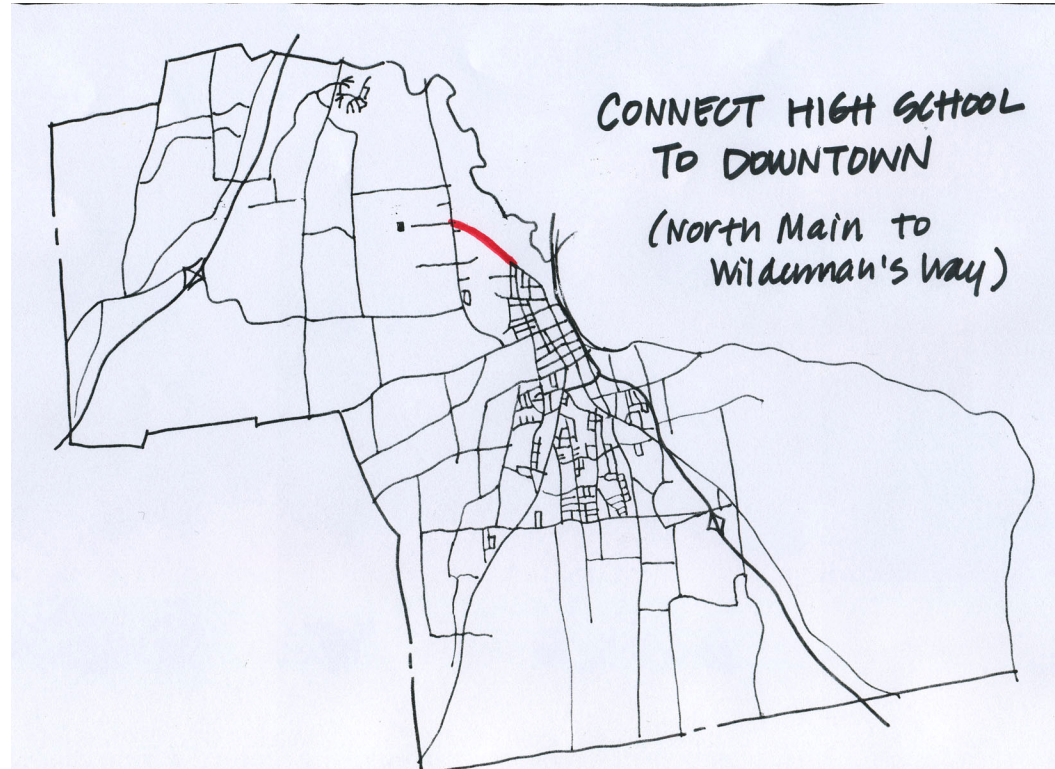 CONNECT HIGH SCHOOL
TO DOWNTOWN
(North Main to
Wilderman's Way)